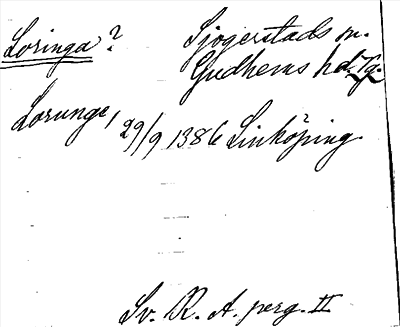 Loringa? Sjogerstads sn.
Gudhems hd. Vg.
Lorunge, 29/9 1386 Linköping
Sv. R. A. perg. II